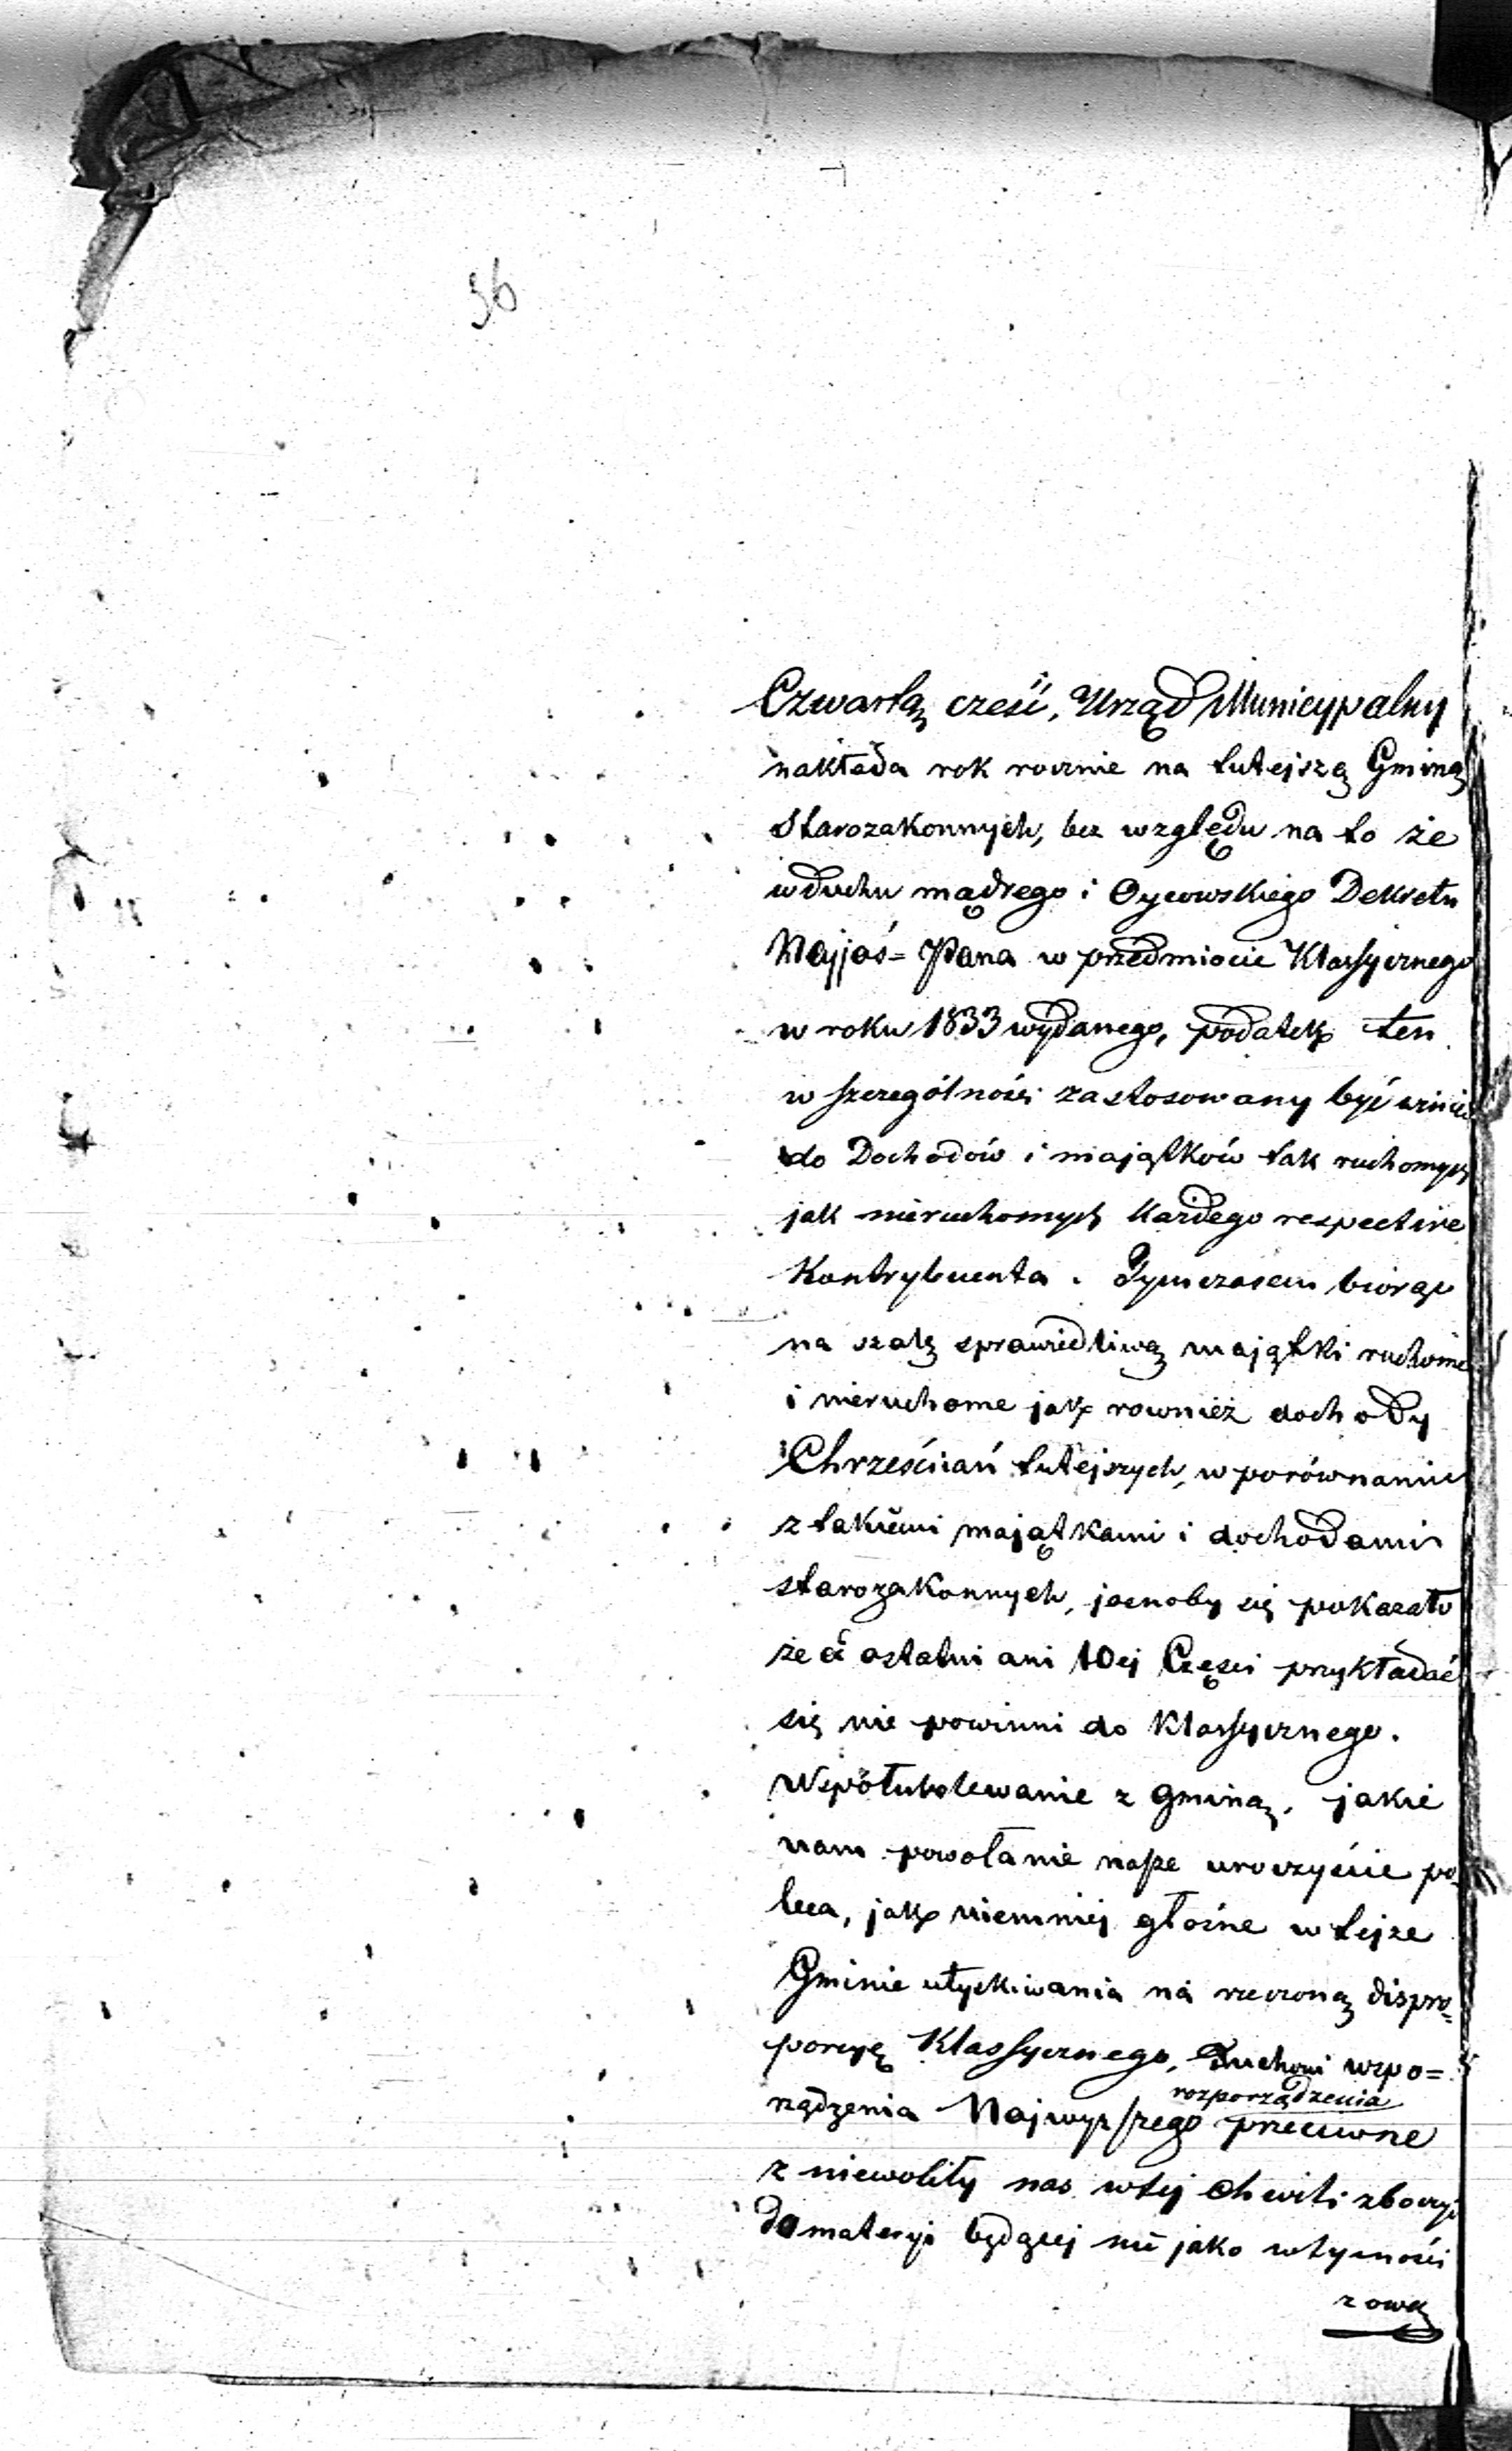 56
Czwartą cześć, Urząd Municypalny
nakłada rok rocznie na tutejszą Gminę
Starozakonnych, bez względu na to że
w duchu mądrego i Oycowskiego Dekretu
Nayjaś= Pana w przedmiocie Klassycznego
w roku 1833 wydanego, podatek ten
w szczególności zastosowany być winien
do Dochodów i majątków tak ruchomych
jak nieruchomych każdego respective
Kontrybuenta. Tymczasem biorąc
na szalę sprawiedliwą majątki ruchome
i nieruchome jak rownież dochody
Chrześcian tutejszych, w porównaniu
z takiemi majątkami i dochodami
starozakonnych, jasnoby się pokazało
że ci ostatni ani 10ej Częsci przykładać
się nie powinni do Klassycznego.
Współubolewanie z gminą, jakie
nam powołanie nasze uroczyście po=
leca, jak niemniej głośne w tejże
Gminie utyskiwania na rzeczoną dispro=
porcyę Klassycznego, Duchowi wzpo=
rządzenia Najwyższego rozporządzenia przeciwne
zniewoliły nas w tej chwili zboczyć
do materyi będącej niejako w styczności
z ową